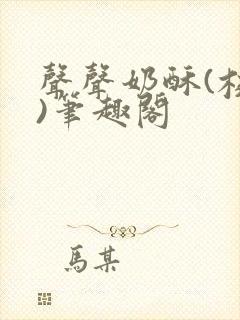 聲聲奶酥(校
)筆趣閣
馬某